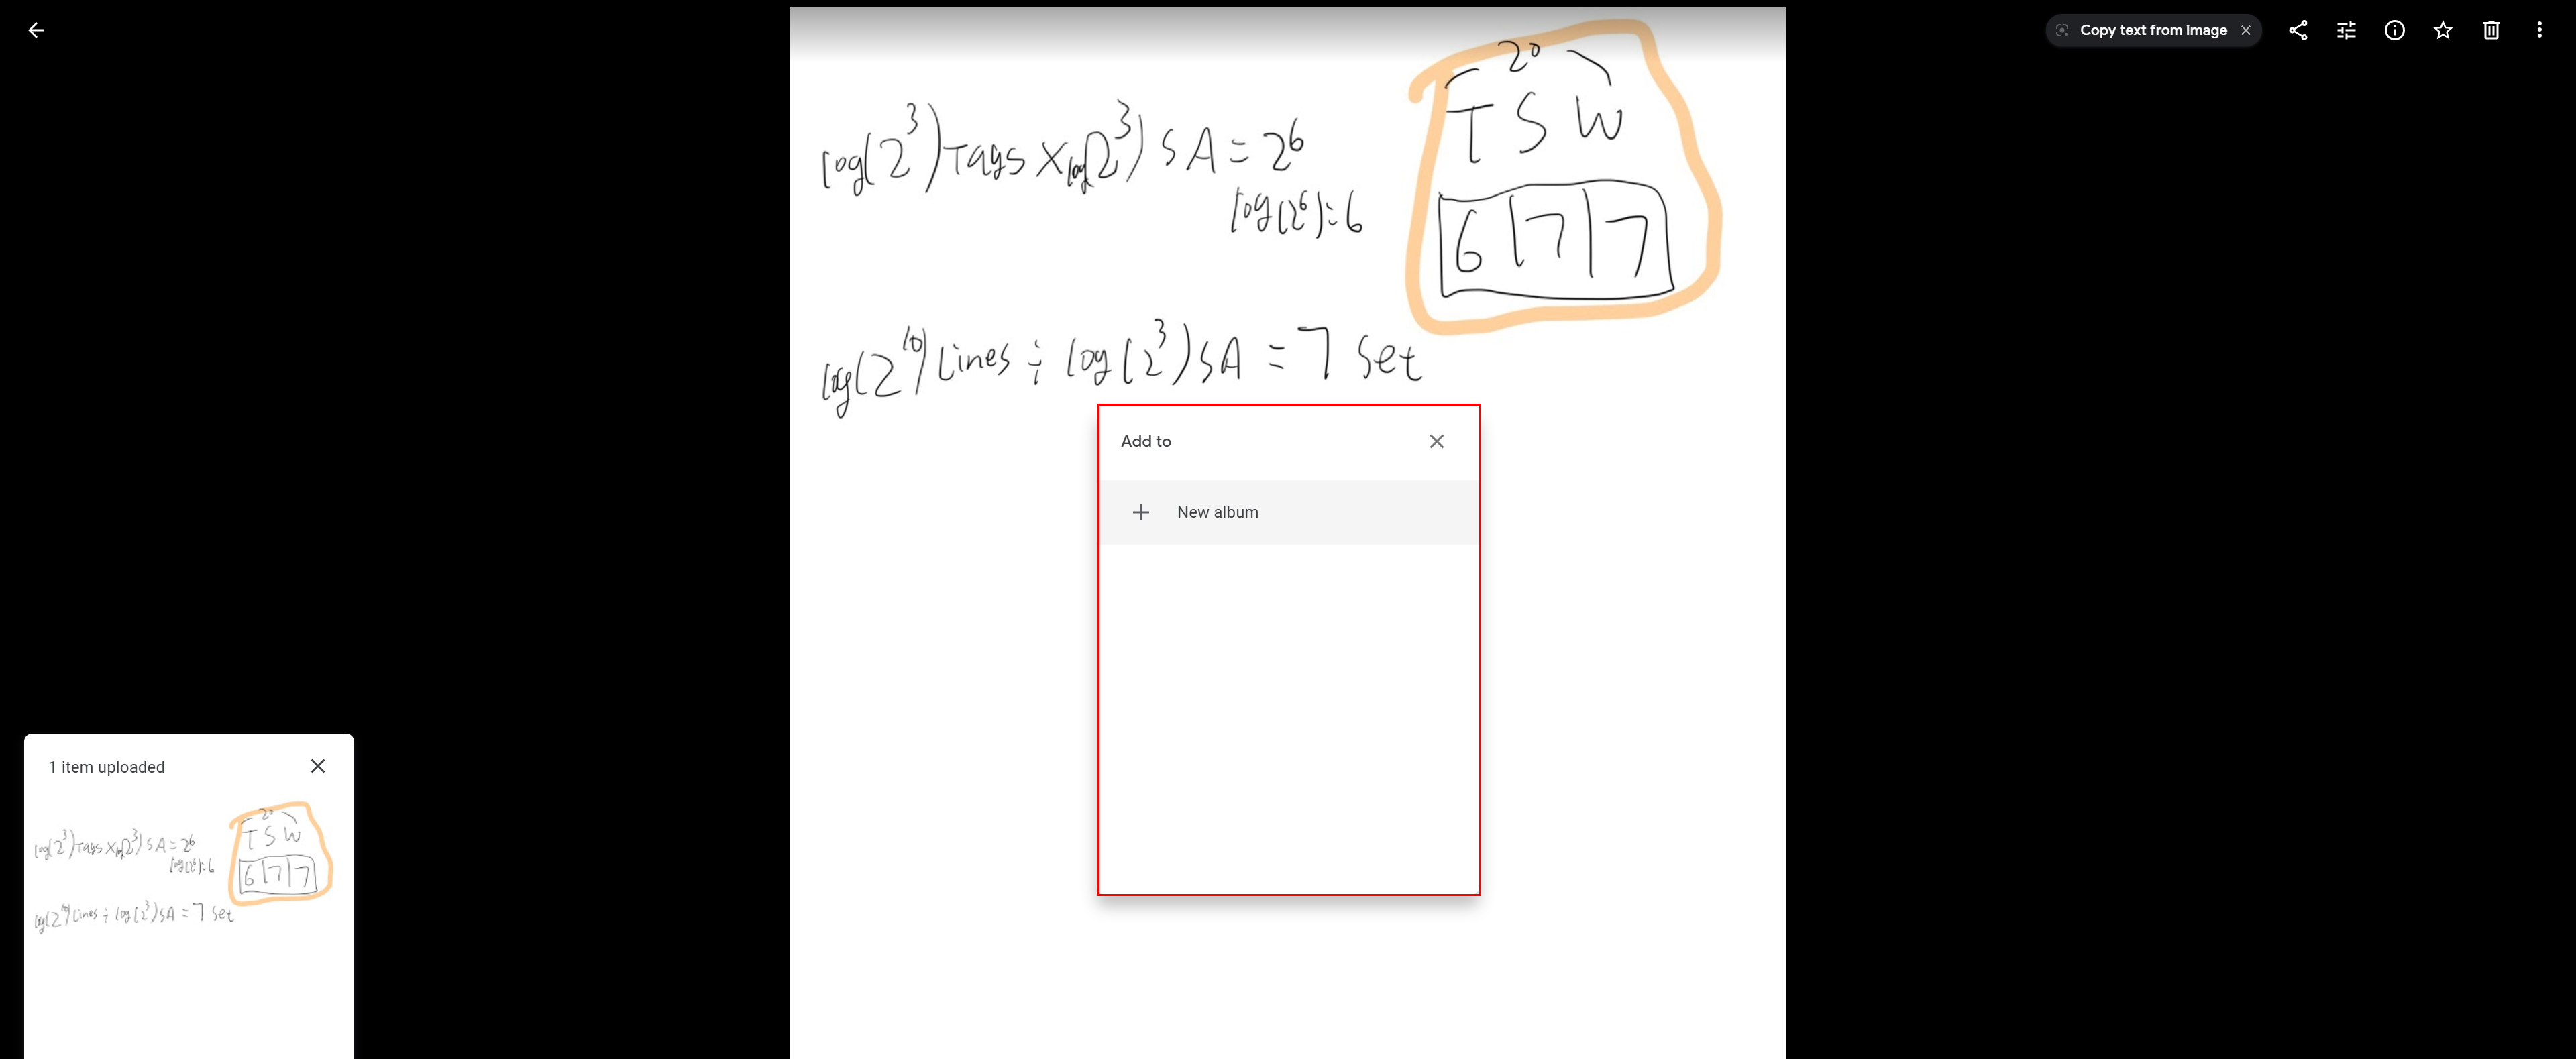 Copy text from image
log(2^3) Tags X log(2^3) SA = 2^6
log(2^6) = 6
20
T S W
6 | 7 | 7
log(2^10) Lines ÷ log(2^3) SA = 7 Set
Add to
New album
1 item uploaded
log(2^3) Tags X log(2^3) SA = 2^6
log(2^6) = 6
20
T S W
6 | 7 | 7
log(2^10) Lines ÷ log(2^3) SA = 7 Set